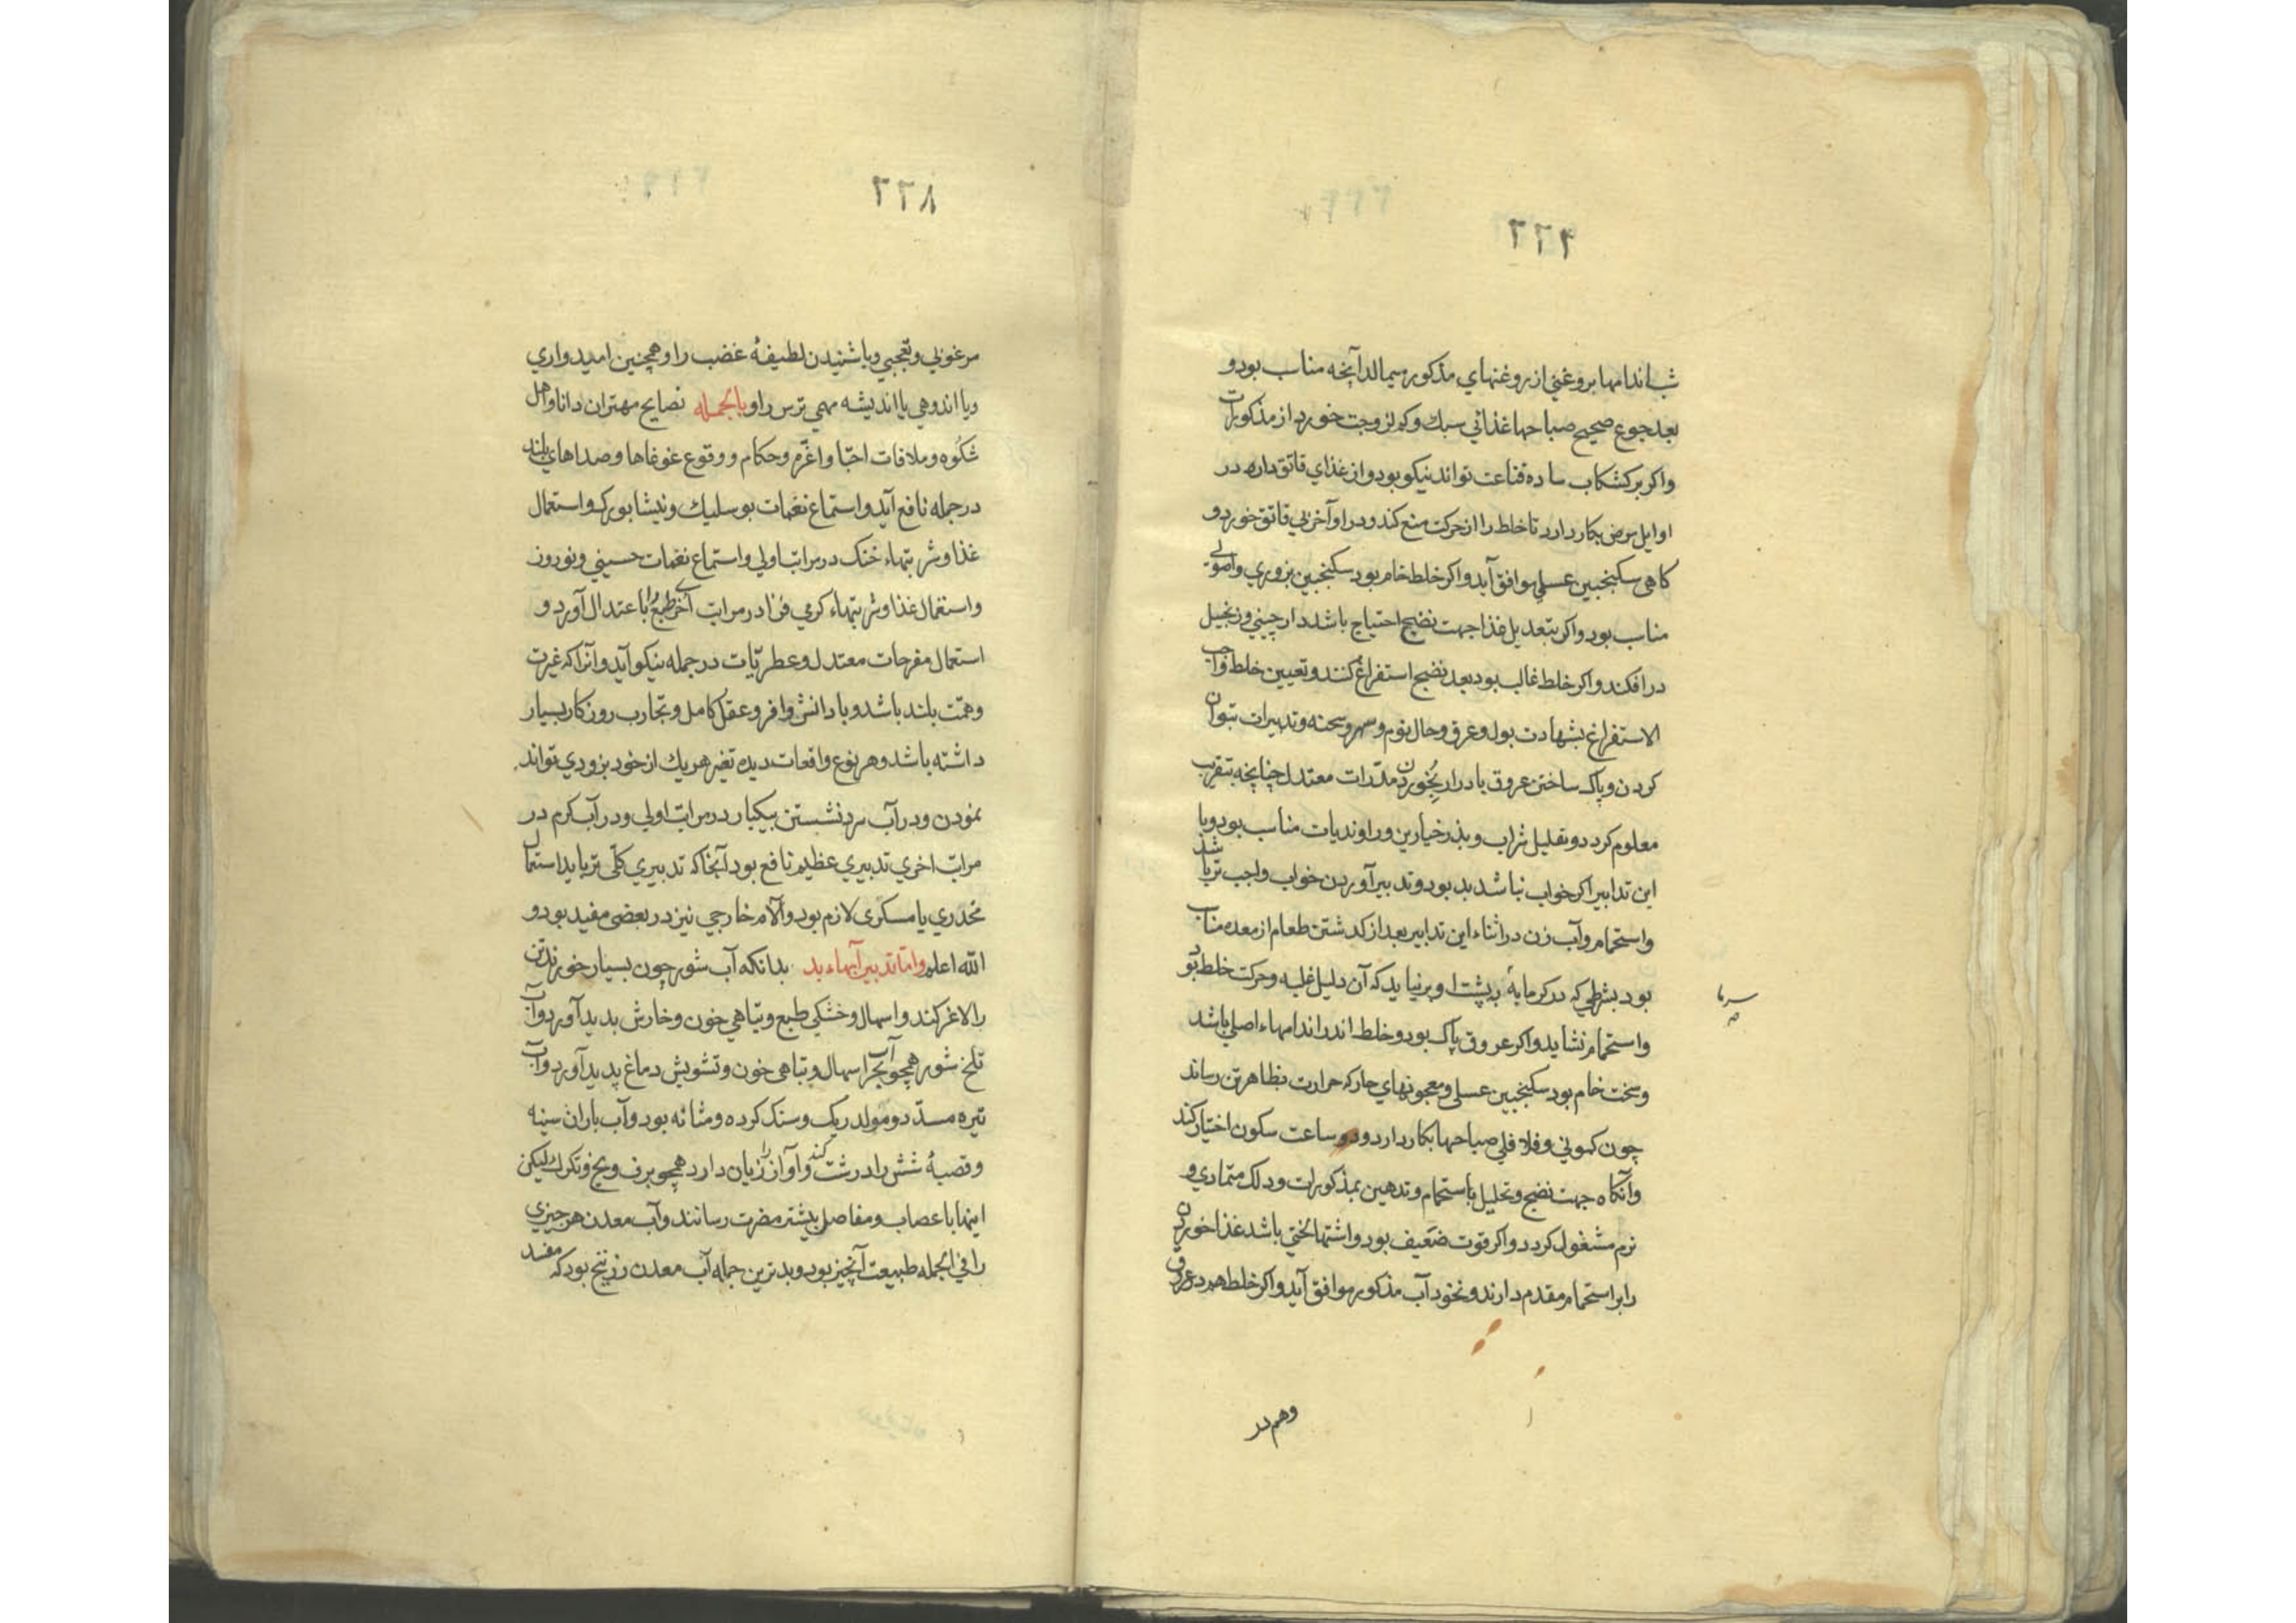 ۲۲۴
شب اندامها بروغنی از روغنهای مذکور میمالد آنچه مناسب بود و
بعد جوع صحیح صباحها غذائی سبک و کم لزوجت خورد از مذکورات
واکر بر کشکاب ساده قناعت تواند نیکو بود و از غذای قاتق دار در
اوایل مرض بکار دارد تا خلط را از حرکت منع کند و در اوآخر بی قاتق خورد و
کاهی سکنجبین عسلی موافق آید واکر خلط خام بود سکنجبین بزوری واصولی
مناسب بود واکر بتعدیل غذا جهت نضج احتیاج باشد دارچینی و زنجبیل
درافکند واکر خلط غالب بود بعد نضج استفراغ کنند و تعیین خلط واجب
الاستفراغ بشهادت بول و عرق و حال نوم و سهر و سحنه و تدبیرات بتوان
کردن و پاک ساختن عروق بادرار بخوردن مدرات معتدل چنانچه بتقریب
معلوم کردد و تقلیل شراب و بذر خیارین و راوندیات مناسب بود و با
این تدابیر اکر خواب نباشد بد بود و تدبیر آوردن خواب واجب تر باشد
واستحمام و آب زن در اثناء این تدابیر بعد از کدشتن طعام از معده مناسب
بود بشرطی که در کرمابه بپشت او برنیاید که آن دلیل غلبه و حرکت خلط بود
واستحمام نشاید واکر عروق پاک بود و خلط اندر اندامهاء اصلی باشد
و سخت خام بود سکنجبین عسلی و معجونهای حار که حرارت بظاهر تن رساند
چون کمونی و فلافلی صباحها بکار دارد و دو ساعت سکون اختیار کند
وآنکاه جهت نضج و تحلیل باستحمام و تدهین بمذکورات و دلک متمادی و
نرم مشغول کردد واکر قوت ضعیف بود واشتها لختی باشد غذا خوردن
را بر استحمام مقدم دارند و نخود آب مذکور موافق آید واکر خلط هم در عروق
سرما
وهم در
۲۲۸
مرغوبی و تعجبی و یا شنیدن لطیفهٔ غضب را و همچنین امیدواری
و یا اندوهی یا اندیشه مهمی ترس را و بالجمله نصایح مهتران دانا و اهل
شکوه و ملاقات احبا و اعزم و حکام و وقوع غوغاها و صداهای بلند
در جمله نافع آید واستماع نغمات بوسلیک و نیشابورک واستعمال
غذا و شربتهاء خنک در مراتب اولی واستماع نغمات حسینی و نوروز
واستعمال غذا و شربتهاء کرمی فزا در مراتب آخری طبع را باعتدال آورد و
استعمال مفرحات معتدل و عطریات در جمله نیکو آید و آنرا که غیرت
و همت بلند باشد و با دانش وافر و عقل کامل و تجارب روزکار بسیار
داشته باشد و هر نوع واقعات دیده تغیر هر یک از خود بزودی تواند
نمودن و در آب سرد نشستن بیکبار در مراتب اولی و در آب کرم در
مراتب اخری تدبیری عظیم نافع بود آنجا که تدبیری کلی تر باید استعمال
مخدری یا مسکری لازم بود وآلام خارجی نیز در بعضی مفید بود و
الله اعلم واما تدبیر آبهاء بد بدانکه آب شور چون بسیار خورند تن
را لاغر کند واسهال و خشکی طبع و تباهی خون و خارش بدید آورد و آب
تلخ شور همچو آب بحر اسهال و تباهی خون و تشویش دماغ پدید آورد و آب
تیره مسدد و مولد ریک و سنک کرده و مثانه بود و آب باران سینه
و قصبهٔ شش را درشت کند و آواز را زیان دارد همچو برف و یخ و تکرک لیکن
اینها باعصاب و مفاصل بیشتر مضرت رسانند و آب معدن هر چیزی
را فی الجمله طبیعت آنچیز بود و بدترین جمله آب معدن زرنیخ بود که مفسد